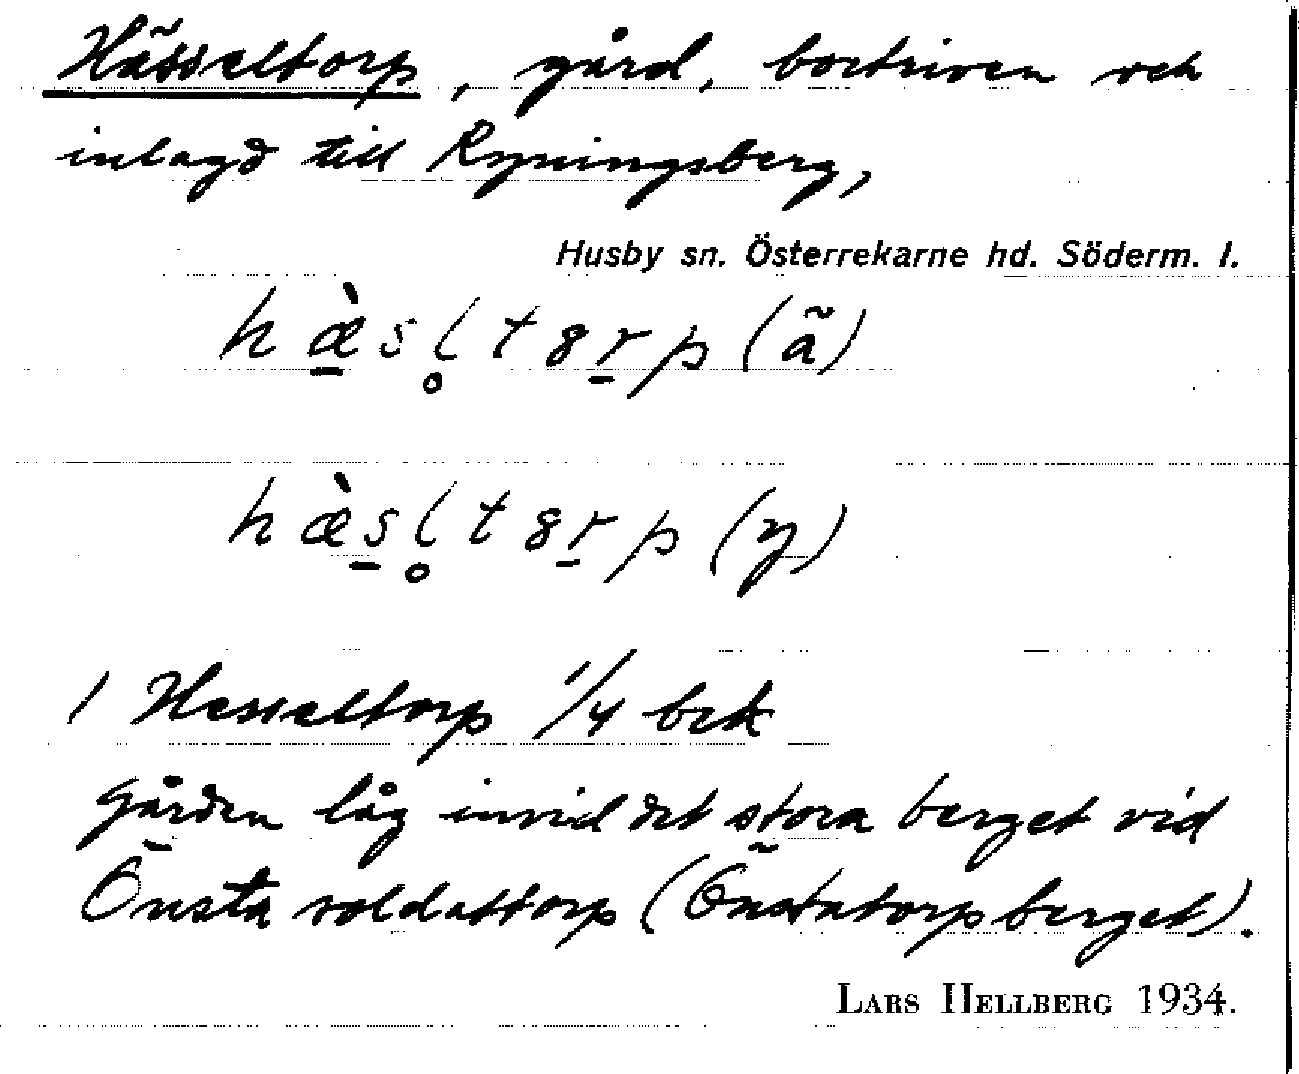 Hässeltorp, gård, bortriven och
inlagd till Ryningsberg,
Husby sn. Österrekarne hd. Söderm. l.
hæ̱̀sl̥t8ṟp (ã)
hæ̀s̱l̥t8ṟp (y)
1 Hesseltorp 1/4 bek
Gården låg invid det stora berget vid
Önsta soldattorp (Önstatorpsberget).
LARS HELLBERG 1934.